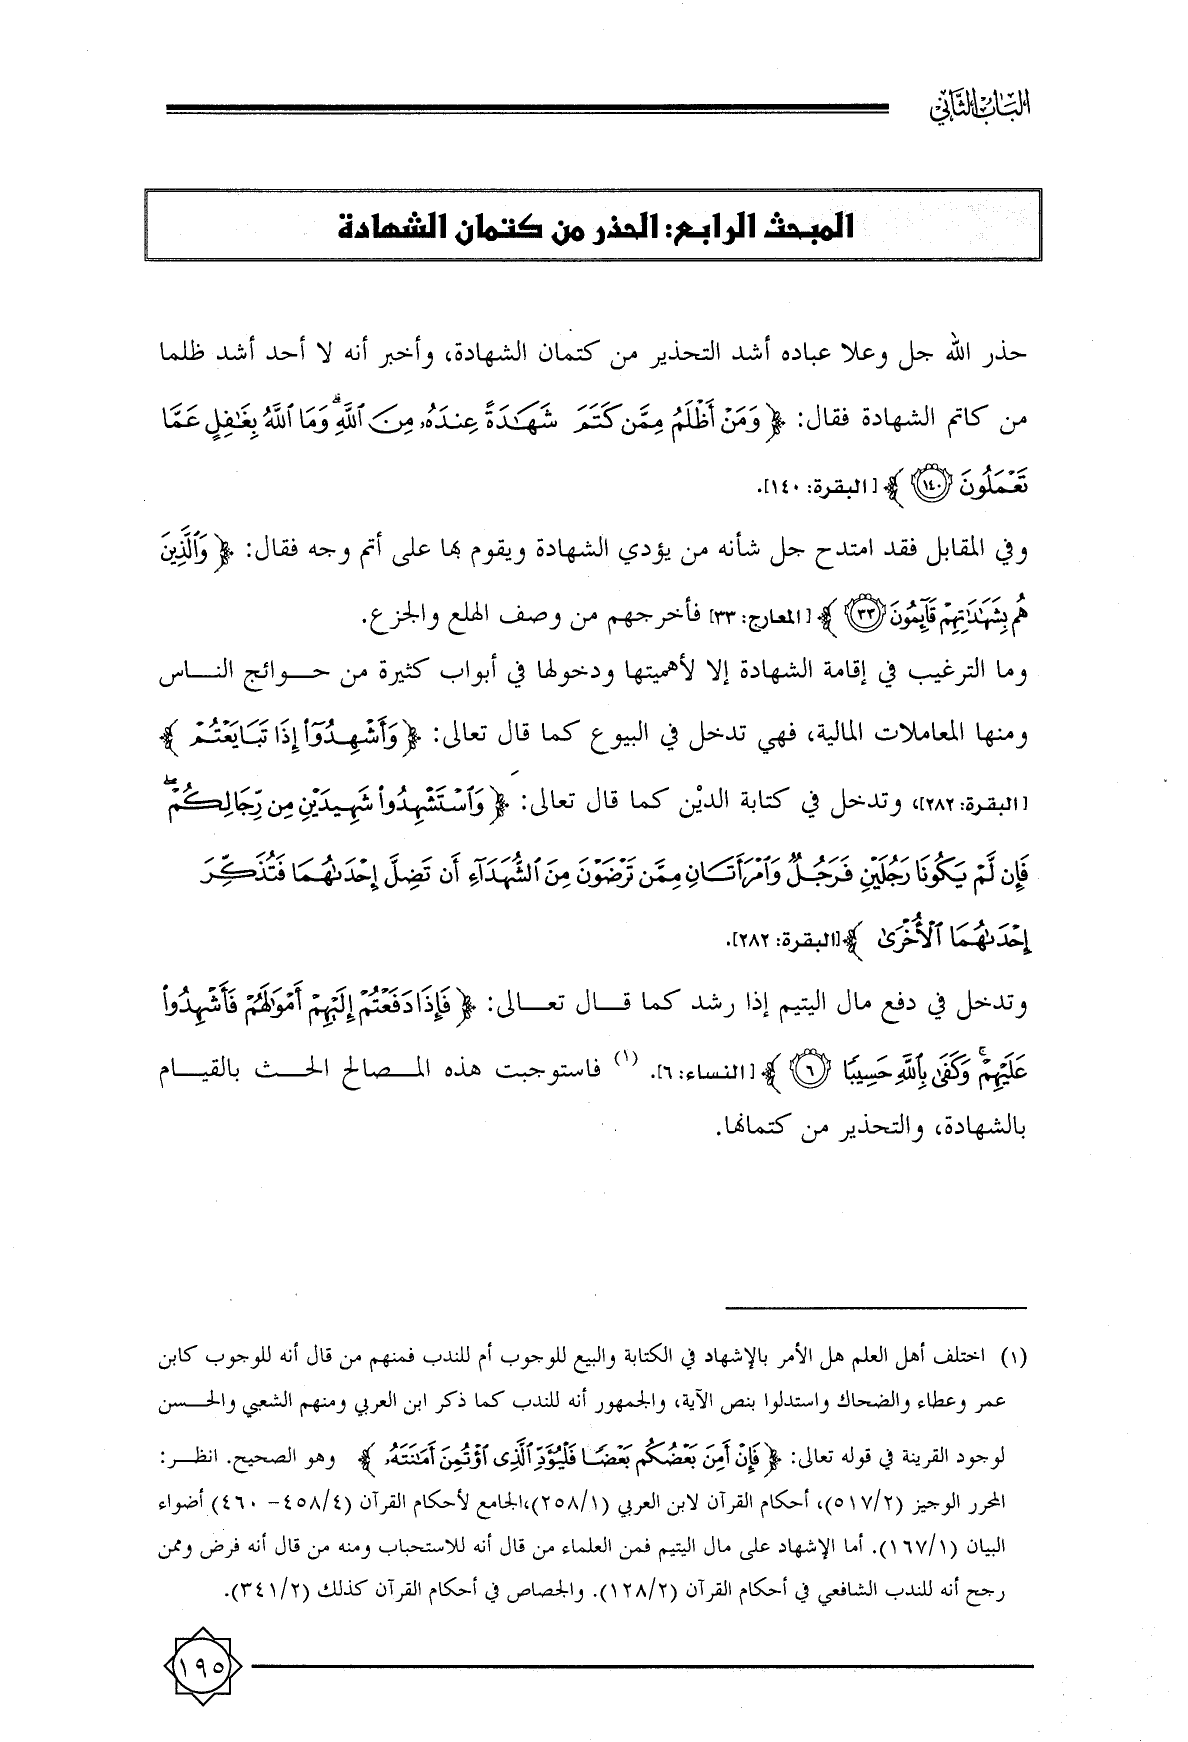 الباب الثاني
المبحث الرابع: الحذر من كتمان الشهادة
حذر الله جل وعلا عباده أشد التحذير من كتمان الشهادة، وأخبر أنه لا أحد أشد ظلما
من كاتم الشهادة فقال: ﴿ وَمَنْ أَظْلَمُ مِمَّن كَتَمَ شَهَٰدَةً عِندَهُۥ مِنَ ٱللَّهِۗ وَمَا ٱللَّهُ بِغَٰفِلٍ عَمَّا
تَعْمَلُونَ ١٤٠ ﴾ [البقرة: ١٤٠].
وفي المقابل فقد امتدح جل شأنه من يؤدي الشهادة ويقوم بها على أتم وجه فقال: ﴿ وَٱلَّذِينَ
هُم بِشَهَٰدَٰتِهِمْ قَآئِمُونَ ٣٣ ﴾ [المعارج: ٣٣] فأخرجهم من وصف الهلع والجزع.
وما الترغيب في إقامة الشهادة إلا لأهميتها ودخولها في أبواب كثيرة من حـوائج النـاس
ومنها المعاملات المالية، فهي تدخل في البيوع كما قال تعالى: ﴿ وَأَشْهِدُوٓا۟ إِذَا تَبَايَعْتُمْ ﴾
[البقرة: ٢٨٢]، وتدخل في كتابة الديْن كما قال تعالى: ﴿ وَٱسْتَشْهِدُوا۟ شَهِيدَيْنِ مِن رِّجَالِكُمْۖ
فَإِن لَّمْ يَكُونَا رَجُلَيْنِ فَرَجُلٌ وَٱمْرَأَتَانِ مِمَّن تَرْضَوْنَ مِنَ ٱلشُّهَدَآءِ أَن تَضِلَّ إِحْدَىٰهُمَا فَتُذَكِّرَ
إِحْدَىٰهُمَا ٱلْأُخْرَىٰ ﴾[البقرة: ٢٨٢].
وتدخل في دفع مال اليتيم إذا رشد كما قـال تعـالى: ﴿ فَإِذَا دَفَعْتُمْ إِلَيْهِمْ أَمْوَٰلَهُمْ فَأَشْهِدُوا۟
عَلَيْهِمْۚ وَكَفَىٰ بِٱللَّهِ حَسِيبًا ٦ ﴾ [النساء: ٦]. (١) فاستوجبت هذه المـصالح الحـث بالقيـام
بالشهادة، والتحذير من كتمانها.
(١) اختلف أهل العلم هل الأمر بالإشهاد في الكتابة والبيع للوجوب أم للندب فمنهم من قال أنه للوجوب كابن
عمر وعطاء والضحاك واستدلوا بنص الآية، والجمهور أنه للندب كما ذكر ابن العربي ومنهم الشعبي والحـسن
لوجود القرينة في قوله تعالى: ﴿ فَإِنْ أَمِنَ بَعْضُكُم بَعْضًا فَلْيُؤَدِّ ٱلَّذِى ٱؤْتُمِنَ أَمَٰنَتَهُۥ ﴾ وهو الصحيح. انظـر:
المحرر الوجيز (٥١٧/٢)، أحكام القرآن لابن العربي (٢٥٨/١)،الجامع لأحكام القرآن (٤٥٨/٤- ٤٦٠) أضواء
البيان (١٦٧/١). أما الإشهاد على مال اليتيم فمن العلماء من قال أنه للاستحباب ومنه من قال أنه فرض وممن
رجح أنه للندب الشافعي في أحكام القرآن (١٢٨/٢). والجصاص في أحكام القرآن كذلك (٣٤١/٢).
١٩٥